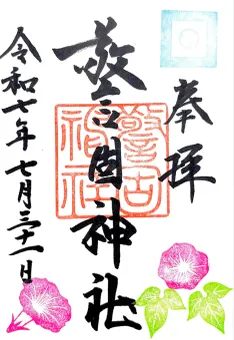 奉拝
警固神社
警固神社
令和七年七月三十一日